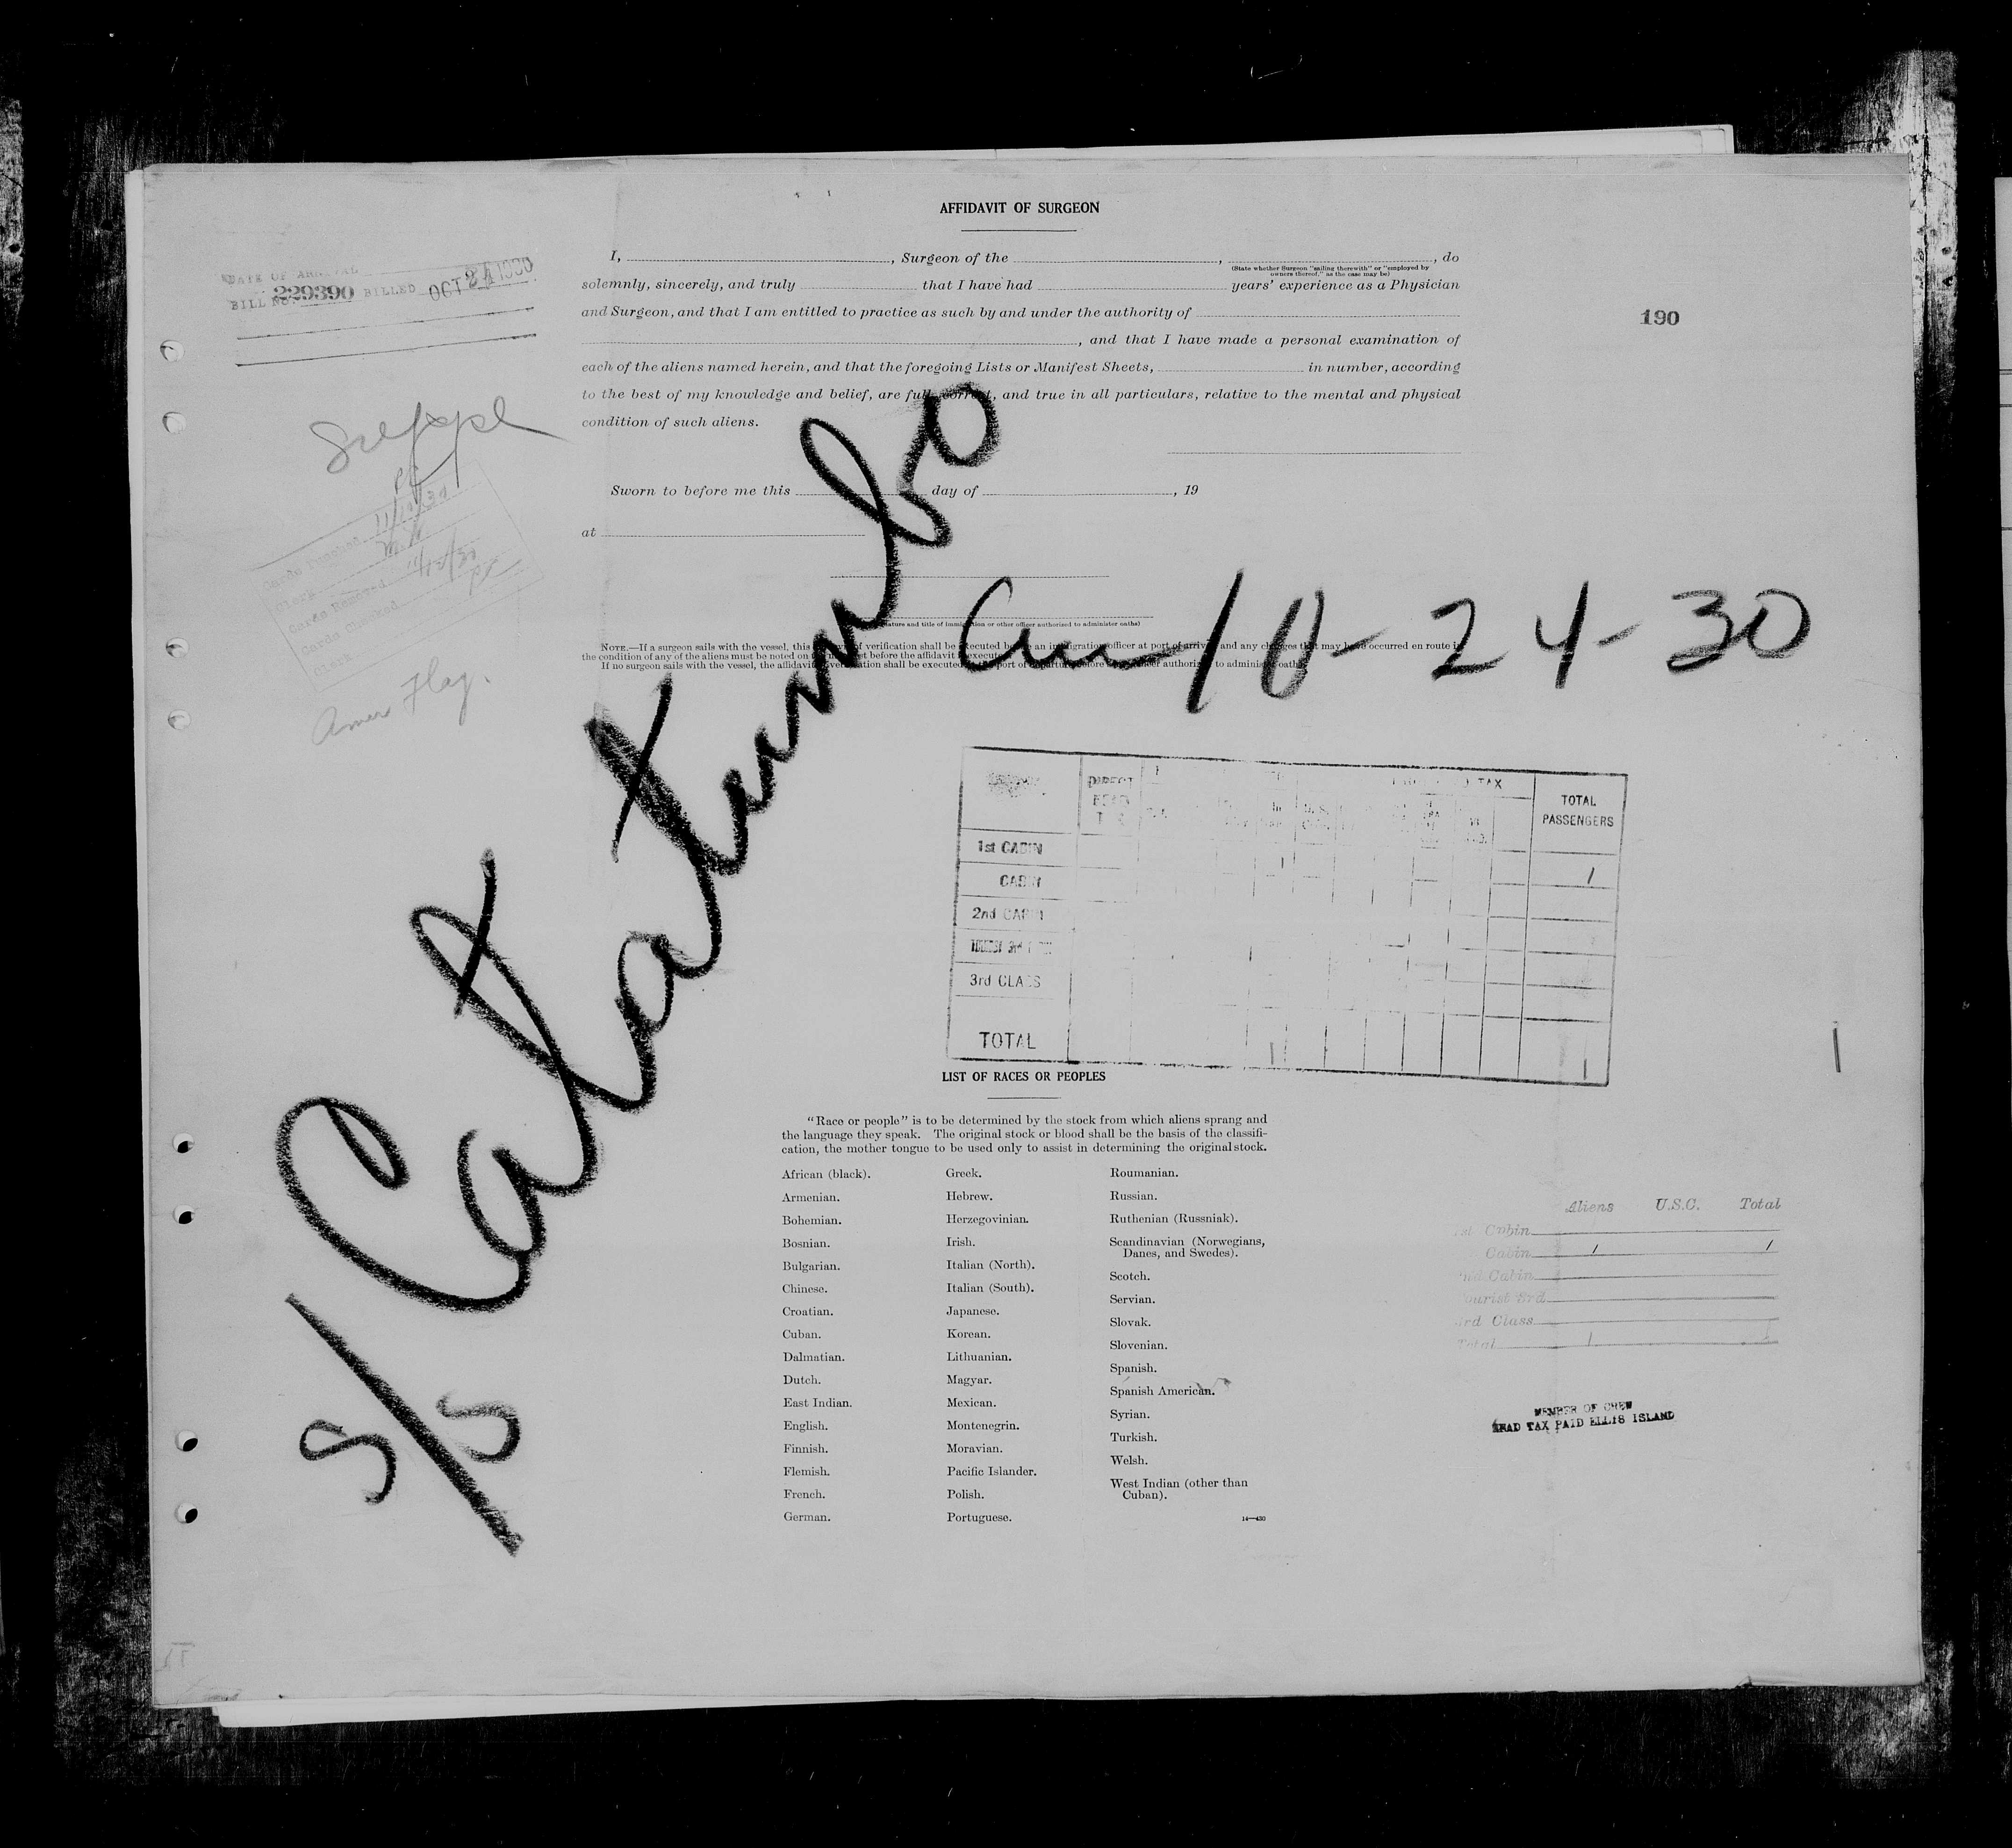 AFFIDAVIT OF SURGEON
I, , Surgeon of the , , do
(State whether Surgeon "sailing therewith" or "employed by
owners thereof," as the case may be)
solemnly, sincerely, and truly that I have had years' experience as a Physician
and Surgeon, and that I am entitled to practice as such by and under the authority of
, and that I have made a personal examination of
each of the aliens named herein, and that the foregoing Lists or Manifest Sheets, in number, according
to the best of my knowledge and belief, are full, correct, and true in all particulars, relative to the mental and physical
condition of such aliens.
Sworn to before me this day of , 19
at
DATE OF ARRIVAL
BILL NO. 229390 BILLED OCT 24 1930
190
Suppl
Cards Punched 11/12/30
Clerk
Cards Removed 11/13/30
Card Checked
Amer Flag.
S/S Catatumbo
Arr 10-24-30
NOTE.—If a surgeon sails with the vessel, this of verification shall be executed before an immigration officer at port of arrival and any changes that may have occurred en route in
the condition of any of the aliens must be noted on before the affidavit executed
If no surgeon sails with the vessel, the affidavit verification shall be executed port of departure before authorized to administer oaths
DIRECT HEAD TAX TAX TOTAL PASSENGERS
1st CABIN
CABIN 1 1
2nd CABIN
TOURIST 3rd
3rd CLASS
TOTAL 1 1
LIST OF RACES OR PEOPLES
"Race or people" is to be determined by the stock from which aliens sprang and
the language they speak. The original stock or blood shall be the basis of the classifi-
cation, the mother tongue to be used only to assist in determining the original stock.
African (black).
Armenian.
Bohemian.
Bosnian.
Bulgarian.
Chinese.
Croatian.
Cuban.
Dalmatian.
Dutch.
East Indian.
English.
Finnish.
Flemish.
French.
German.
Greek.
Hebrew.
Herzegovinian.
Irish.
Italian (North).
Italian (South).
Japanese.
Korean.
Lithuanian.
Magyar.
Mexican.
Montenegrin.
Moravian.
Pacific Islander.
Polish.
Portuguese.
Roumanian.
Russian.
Ruthenian (Russniak).
Scandinavian (Norwegians,
Danes, and Swedes).
Scotch.
Servian.
Slovak.
Slovenian.
Spanish.
Spanish American.
Syrian.
Turkish.
Welsh.
West Indian (other than
Cuban).
14—430
Aliens U.S.C. Total
1st Cabin
Cabin 1 1
2nd Cabin
Tourist 3rd
3rd Class
Total 1 1
MEMBER OF CREW
HEAD TAX PAID ELLIS ISLAND